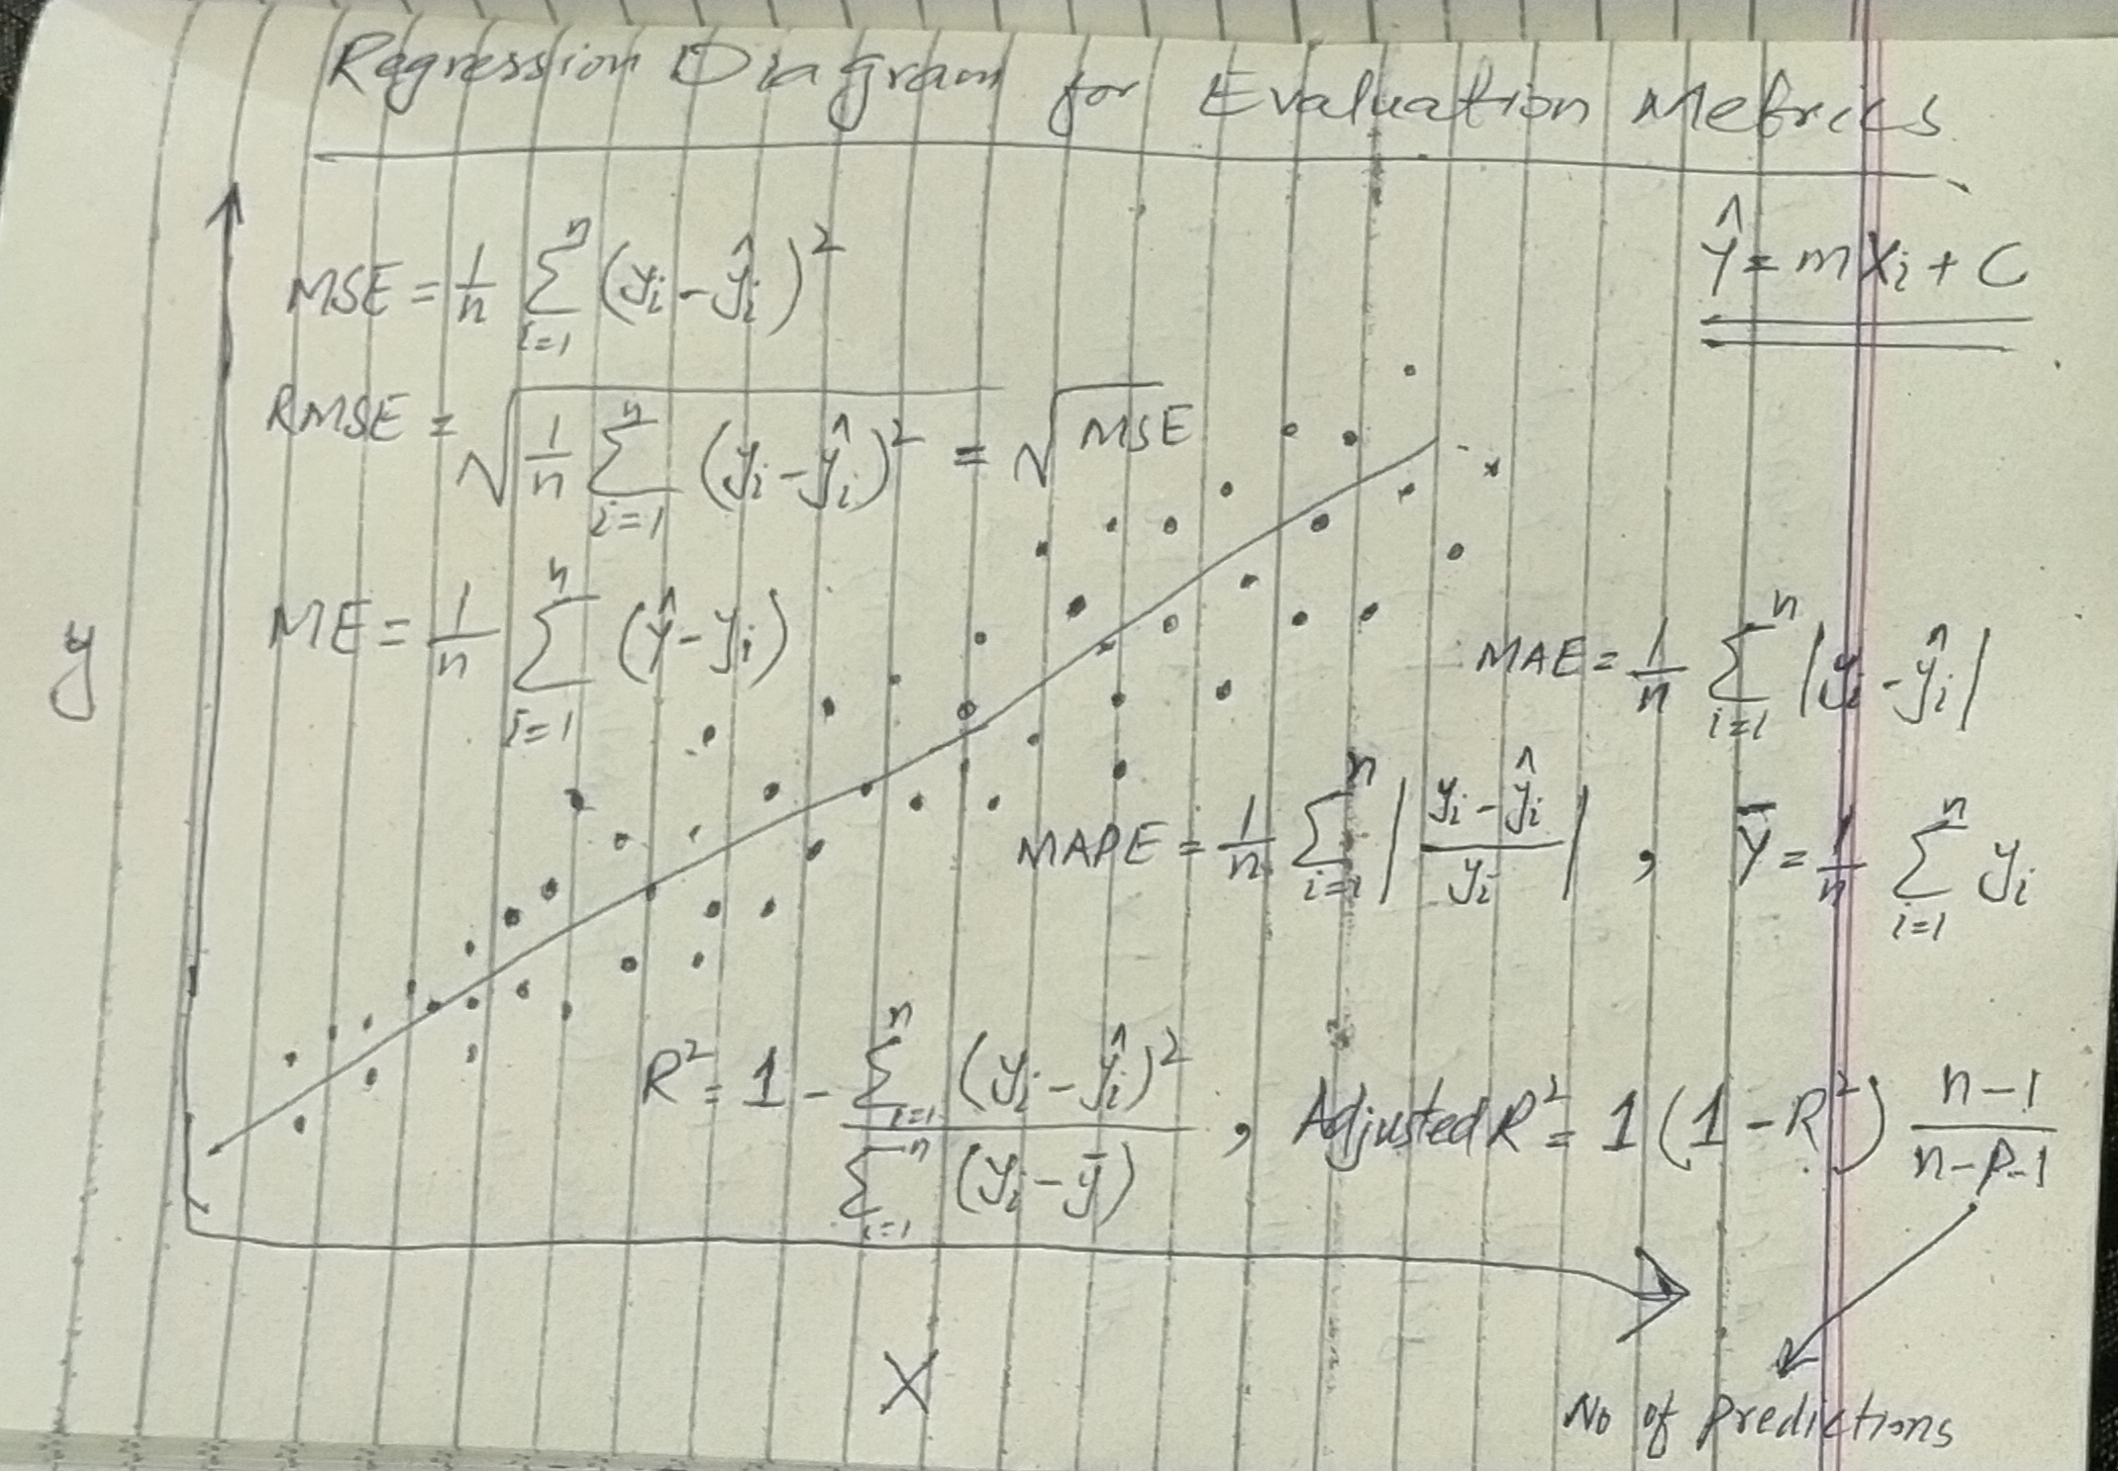 Regression Diagram for Evaluation Metrics
Ŷ = mXi + C
MSE = 1/n ∑_{i=1}^{n} (yi - ŷi)²
RMSE = √(1/n ∑_{i=1}^{n} (yi - ŷi)²) = √MSE
ME = 1/n ∑_{i=1}^{n} (ŷ - yi)
y
MAE = 1/n ∑_{i=1}^{n} |yi - ŷi|
MAPE = 1/n ∑_{i=1}^{n} |(yi - ŷi)/yi| , Ȳ = 1/n ∑_{i=1}^{n} yi
R² = 1 - ∑_{i=1}^{n} (yi - ŷi)² / ∑_{i=1}^{n} (yi - ȳ) , Adjusted R² = 1 (1 - R²) (n-1)/(n-P-1)
X
No of Predictions